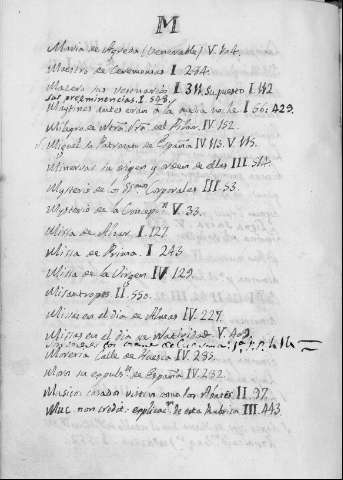 M
Maria de Agreda (Venerable) V. 104.
Maestro de Ceremonias I 234.
Macero sus vestuarios I 311. Su puesto I. 142
sus preeminencias. I. 548.
Maytines antes eran a la media noche I 56: 429.
Milagro de Ntrª Srª del Pilar IV 152.
Miguel Sn Patrono de España IV 113. V. 115.
Minervas su origen y orden de ellas III 514.
Mysterio de los Ssmos Corporales III. 53.
Mysterio de la Concepn V. 33.
Missa de Alva I. 127
Missa de Prima. I. 243
Missa de la Virgen IV 129.
Misantropos II. 550.
Missas en el dia de Almas IV. 227.
Missas en el dia de Natividad V. 409.
Moreria Calle de Huesca IV. 285.
Moros su expulsn de España IV. 232.
Musicos casados visten como los demas II. 97.
Muc. non credit: explicacn de esta Rubrica III. 443.